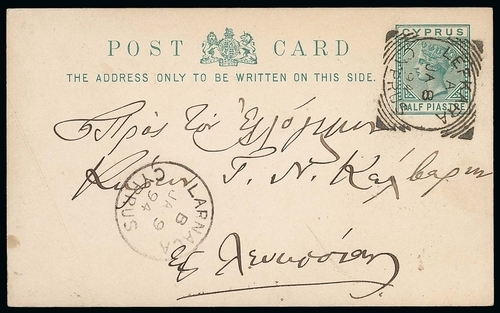 POST CARD
CYPRUS
THE ADDRESS ONLY TO BE WRITTEN ON THIS SIDE.
HALF PIASTRE
LEFKARA
CYPRUS
JA 8
Πρὸς τὸν Ἐλλόγιμον
Κύριον Γ. Ν.
LARNACA
CYPRUS
B
JA 9
94
Εἰς Λευκωσίαν